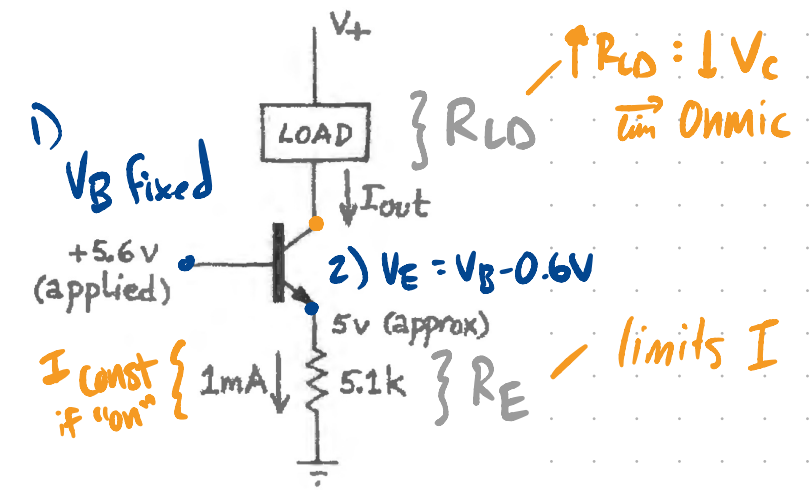 V+
↑ R_LD : ↓ V_C
lim Ohmic
LOAD } R_LD
1)
V_B fixed
↓ I_out
+5.6V
(applied)
2) V_E = V_B - 0.6V
5v (approx)
I const
if "on" { 1mA ↓
5.1k } R_E
limits I